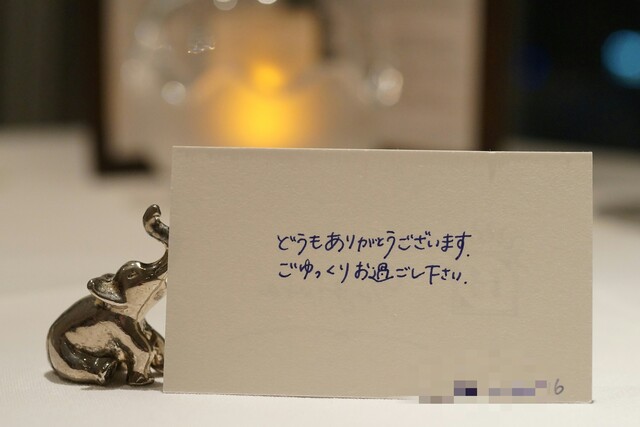 どうもありがとうございます.
ごゆっくりお過ごし下さい.
6